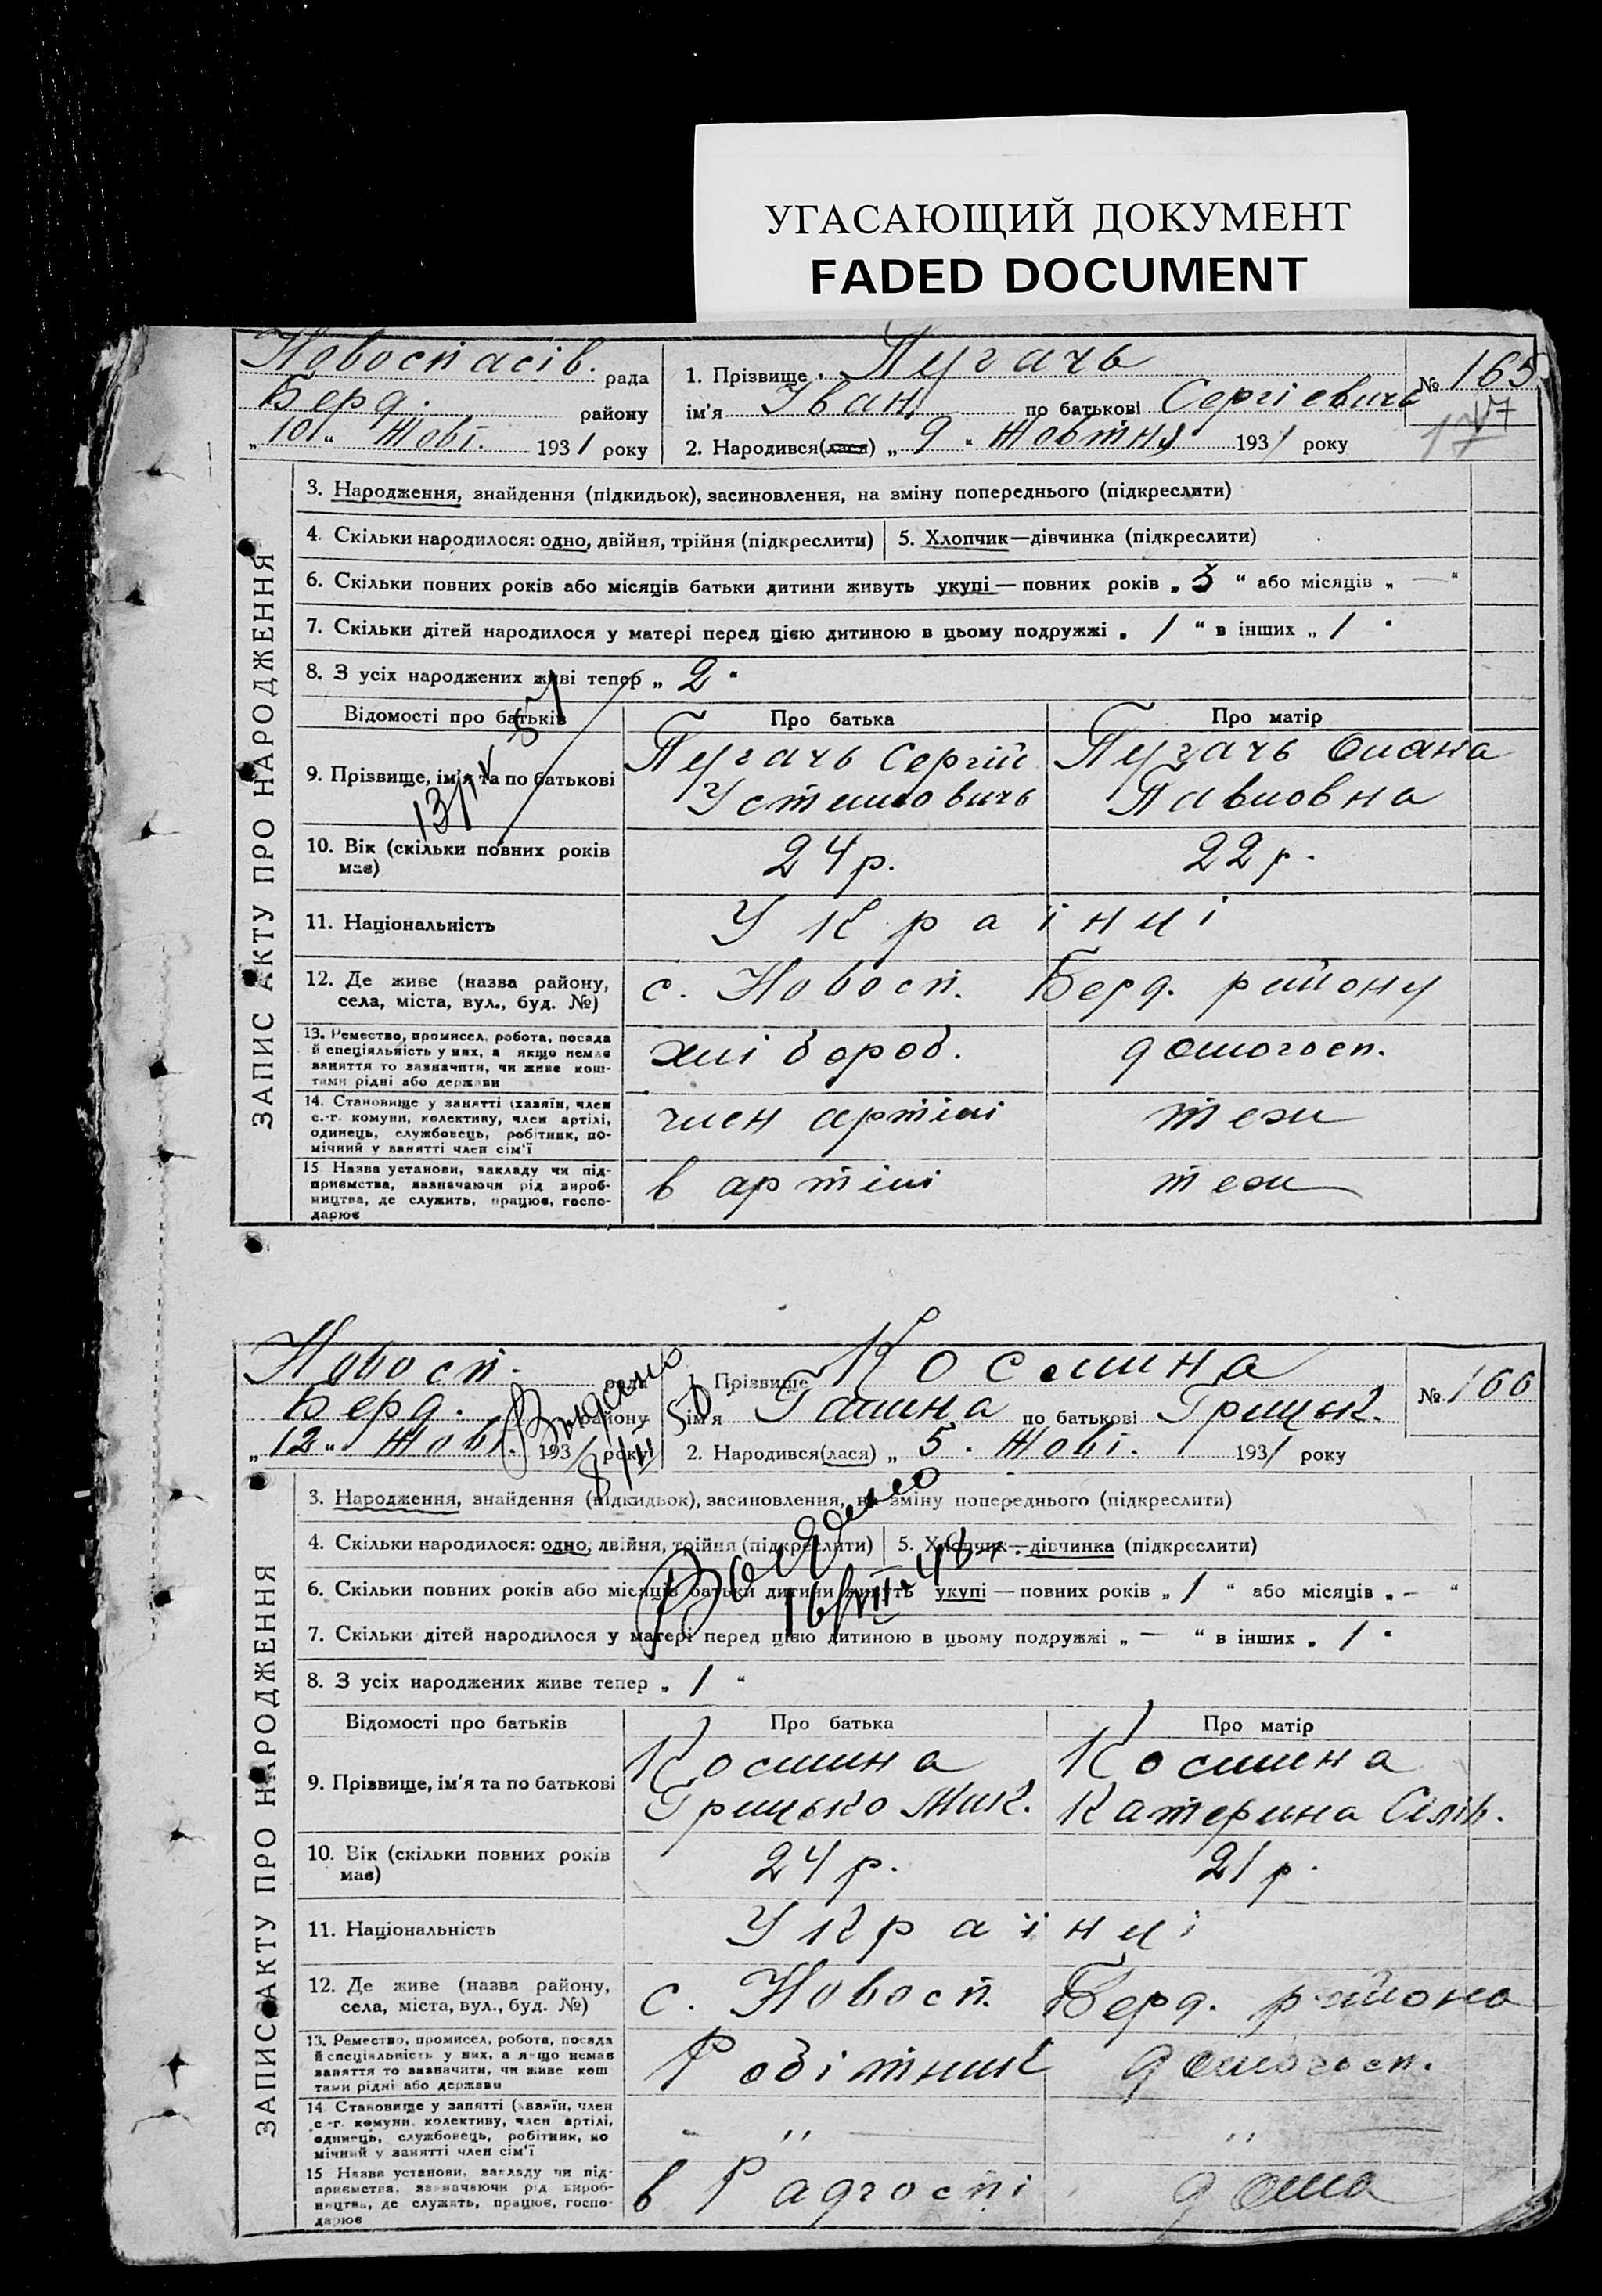 УГАСАЮЩИЙ ДОКУМЕНТ
FADED DOCUMENT
Новоспасів. рада
Берд. району
„10“ Жовт. 1931 року
1. Прізвище Пугачь
ім'я Іван по батькові Сергієвичь
2. Народився(лася) „9“ Жовтня 1931 року
№ 165
177
ЗАПИС АКТУ ПРО НАРОДЖЕННЯ
3. Народження, знайдення (підкидьок), засиновлення, на зміну попереднього (підкреслити)
4. Скільки народилося: одно, двійня, трійня (підкреслити) 5. Хлопчик—дівчинка (підкреслити)
6. Скільки повних років або місяців батьки дитини живуть укупі — повних років „3“ або місяців „—“
7. Скільки дітей народилося у матері перед цією дитиною в цьому подружжі „1“ в інших „1“
8. З усіх народжених живі тепер „2“
Відомості про батьків Про батька Про матір
9. Прізвище, ім'я та по батькові
Пугачь Сергій
Устимовичь
Пугачь
Павловна
13/IV 51
10. Вік (скільки повних років має) 24 р. 22 р.
11. Національність Українці
12. Де живе (назва району,
села, міста, вул., буд. №) с. Новосп. Берд. району
13. Ремество, промисел, робота, посада
й спеціяльність у них, а якщо немає
заняття то зазначити, чи живе кош-
тами рідні або держави
хлібороб. домогосп.
14. Становище у занятті (хазяїн, член
с.-г. комуни, колективу, член артілі,
одинець, службовець, робітник, по-
мічний у занятті член сім'ї
член артілі теж
15 Назва установи, закладу чи під-
приємства, зазначаючи рід вироб-
ництва, де служить, працює, госпо-
дарює
в артілі теж
Новосп. рада
Берд. району
„12“ Жовт. 1931 року
1. Прізвище Космина
ім'я Галина по батькові Грицьк.
2. Народився(лася) „5“ Жовт. 1931 року
№ 166
Выдано
50
ЗАПИС АКТУ ПРО НАРОДЖЕННЯ
3. Народження, знайдення (підкидьок), засиновлення, на зміну попереднього (підкреслити)
4. Скільки народилося: одно, двійня, трійня (підкреслити) 5. Хлопчик—дівчинка (підкреслити)
16/VIII-48г.
6. Скільки повних років або місяців батьки дитини живуть укупі — повних років „1“ або місяців „—“
7. Скільки дітей народилося у матері перед цією дитиною в цьому подружжі „—“ в інших „1“
8. З усіх народжених живе тепер „1“
Відомості про батьків Про батька Про матір
9. Прізвище, ім'я та по батькові
Космина
Грицько Мик.
Космина
Катерина
10. Вік (скільки повних років має) 24 р. 21 р.
11. Національність Українці
12. Де живе (назва району,
села, міста, вул., буд. №) с. Новосп. Берд. района
13. Ремество, промисел, робота, посада
й спеціяльність у них, а якщо немає
заняття то зазначити, чи живе кош
тами рідні або держави
Робітник домогосп.
14 Становище у занятті (хазяїн, член
с.-г. комуни, колективу, член артілі,
одинець, службовець, робітник, по
мічний у занятті член сім'ї
- „ — „ —
15 Назва установи, закладу чи під-
приємства, зазначаючи рід вироб-
ництва, де служить, працює, госпо-
дарює
в Радгоспі дома